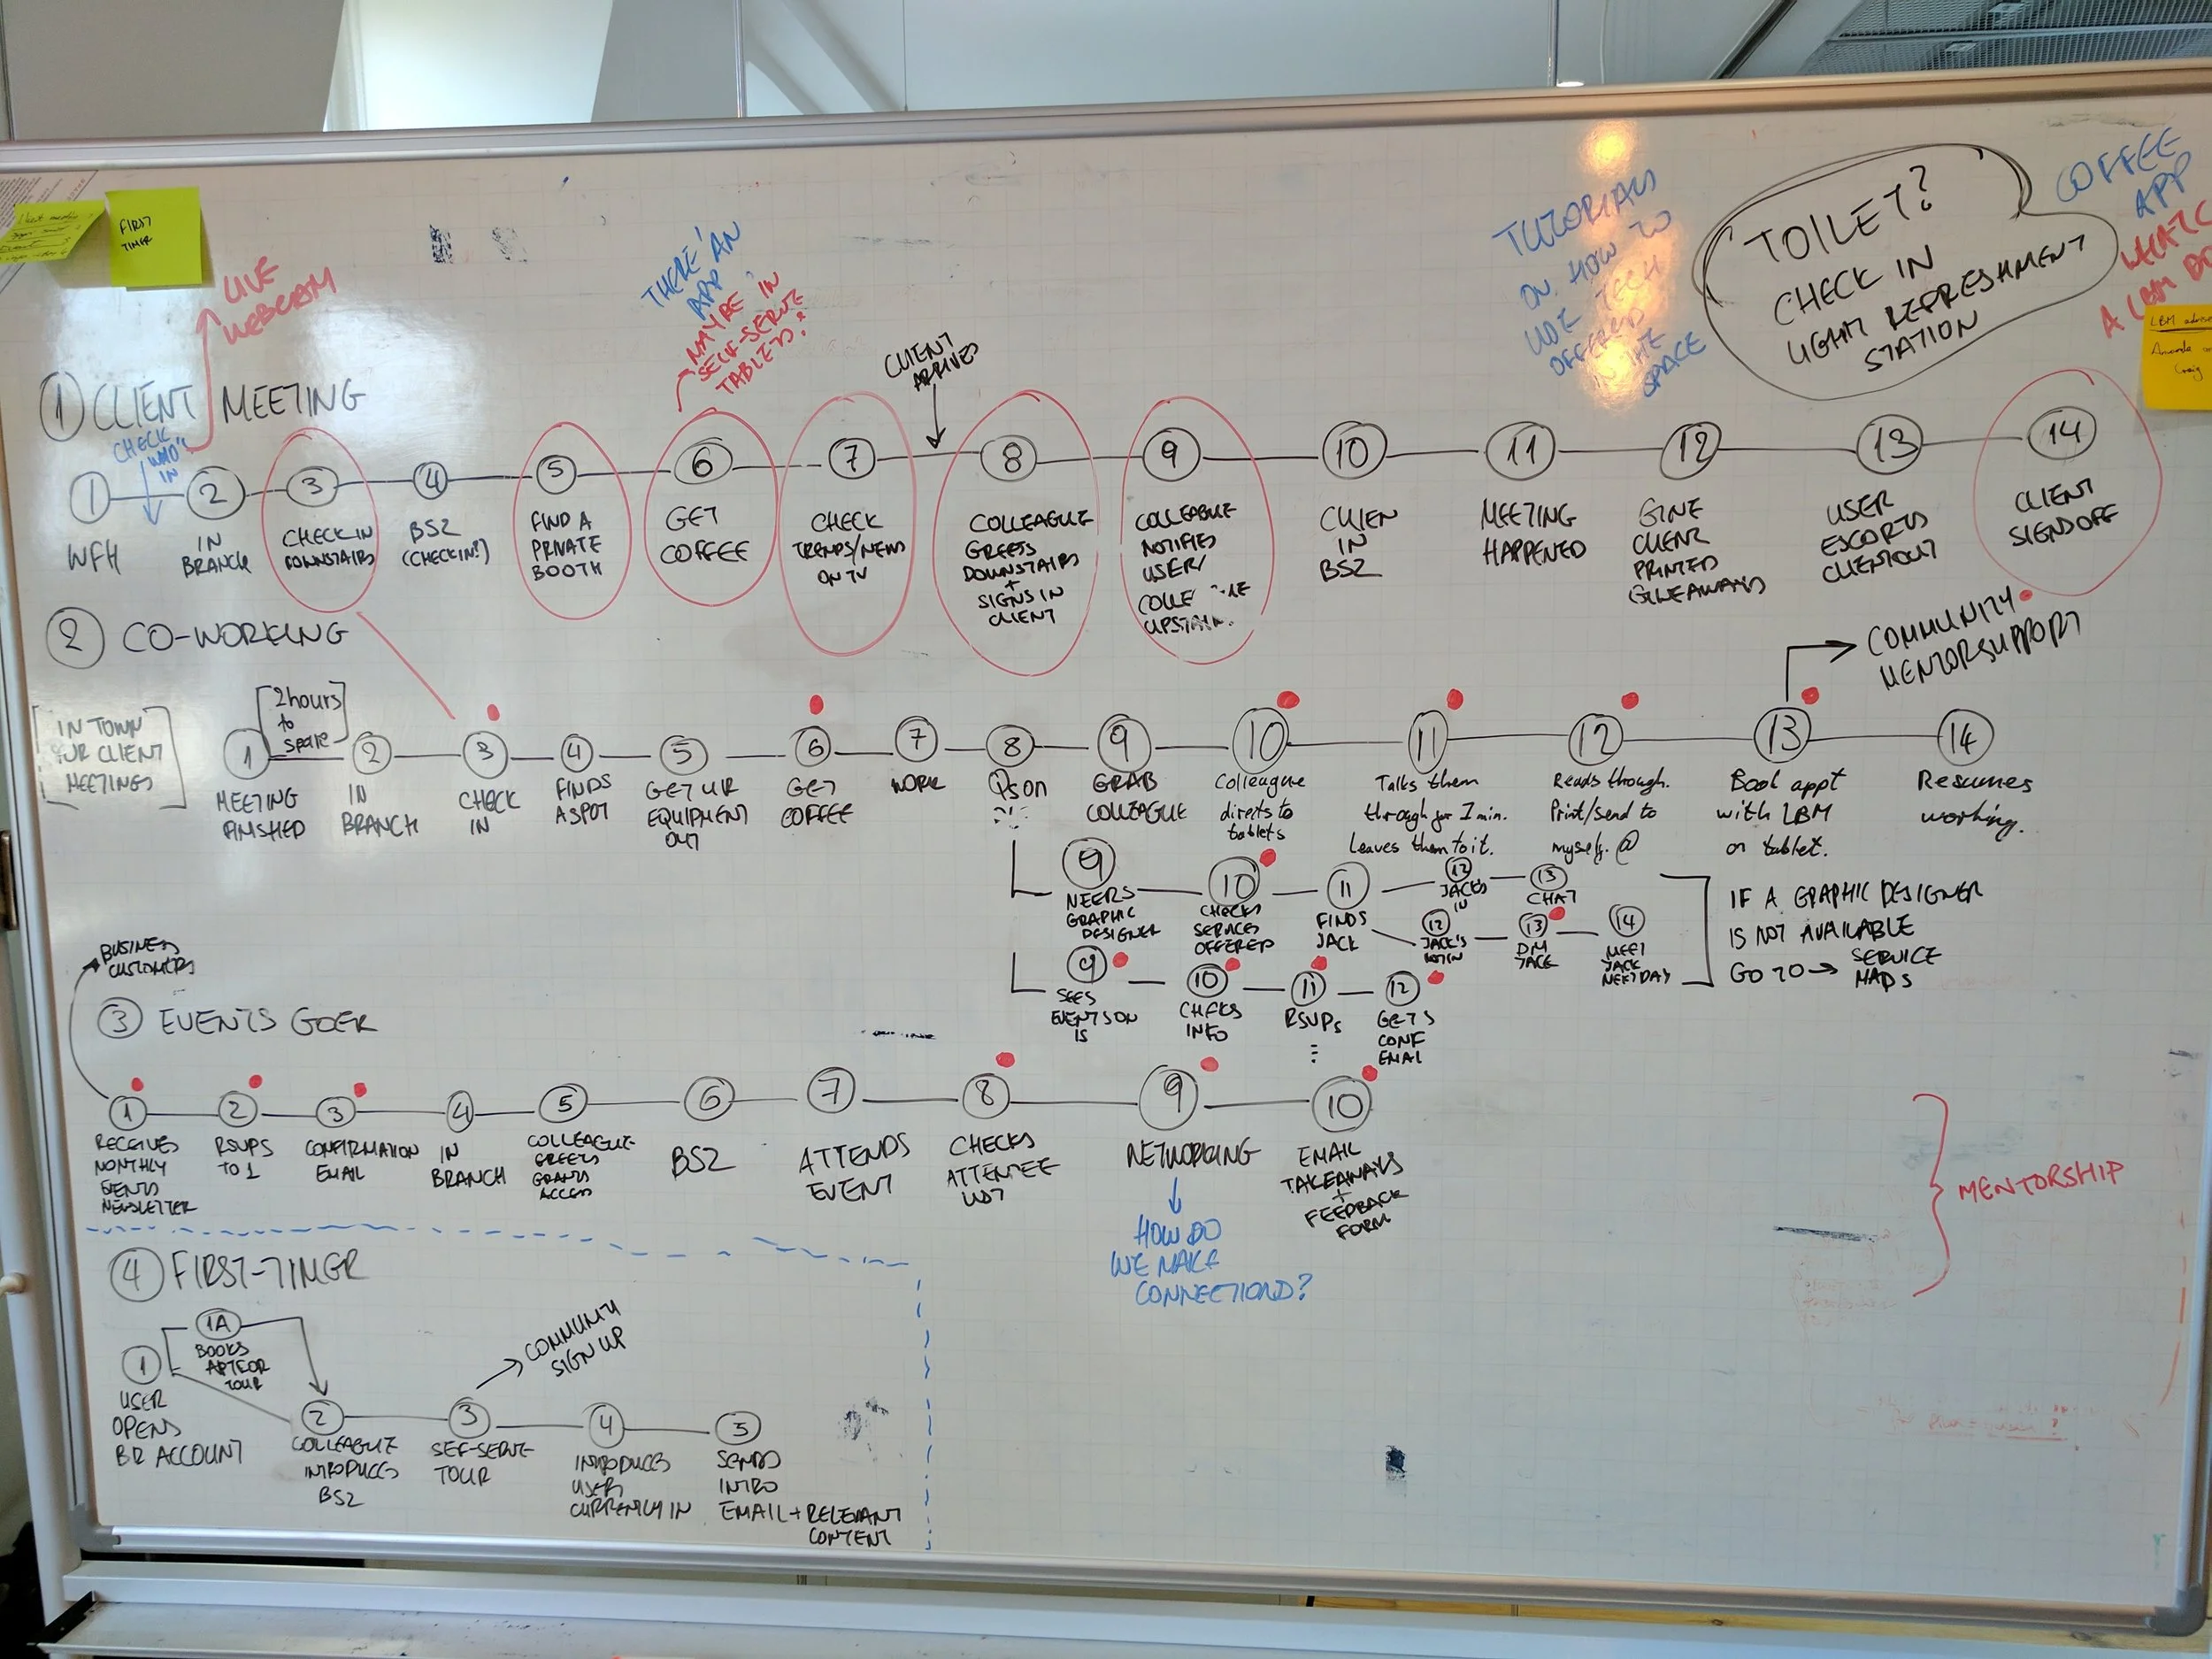 FIRST
TIMER
LIVE
WEBCAM
THERE' AN
APP
MAYBE IN
SELF-SERVE
TABLETS?
CLIENT
ARRIVES
TUTORIALS
ON HOW TO
USE TECH
OFFERED
IN THE
SPACE
TOILET?
CHECK IN
LIGHT REFRESHMENT
STATION
COFFEE
APP
A LBM DO
Amanda
Craig
① CLIENT MEETING
CHECK
WHO'S
IN
1
WFH
2
IN
BRANCH
3
CHECK IN
DOWNSTAIRS
4
BS2
(CHECKIN?)
5
FIND A
PRIVATE
BOOTH
6
GET
COFFEE
7
CHECK
TRENDS/NEWS
ON TV
8
COLLEAGUE
GREETS
DOWNSTAIRS
+
SIGNS IN
CLIENT
9
COLLEAGUE
NOTIFIES
USER/
10
CLIEN
IN
BS2
11
MEETING
HAPPENED
12
GIVE
CLIENT
PRINTED
GIVEAWAYS
13
USER
ESCORTS
CLIENT OUT
14
CLIENT
SIGND OFF
② CO-WORKING
COMMUNITY
MENTOR SUPPORT
IN TOWN
FUR CLIENT
MEETINGS
[2hours
to
spare]
1
MEETING
FINISHED
2
IN
BRANCH
3
CHECK
IN
4
FINDS
A SPOT
5
GET UR
EQUIPMENT
OUT
6
GET
COFFEE
7
WORK
8
Qs on
9
GRAB
COLLEAGUE
10
Colleague
directs to
tablets
11
Talks them
through for 1 min.
Leaves them to it.
12
Reads through.
Print/send to
myself. @
13
Book appt
with LBM
on tablet.
14
Resumes
working.
9
NEERS
GRAPHIC
DESIGNER
10
CHECKS
SERVICES
OFFERED
11
FINDS
JACK
12
JACK'S
IN
13
CHAT
12
JACK'S
NOT IN
13
DM
JACK
14
MEET
JACK
NEXT DAY
IF A GRAPHIC DESIGNER
IS NOT AVAILABLE
GO TO → SERVICE
MAPS
9
SEES
EVENTS ON
IS
10
CHEKS
INFO
11
RSVPs
12
GETS
CONF
EMAI
BUSINESS
CUSTOMERS
③ EVENTS GOER
1
RECEIVES
MONTHLY
EVENTS
NEWSLETTER
2
RSVPS
TO 1
3
CONFIRMATION
EMAIL
4
IN
BRANCH
5
COLLEAGUE
GREETS
GRANTS
ACCESS
6
BS2
7
ATTENDS
EVENT
8
CHECKS
ATTENTEE
LIST
9
NETWORKING
10
EMAIL
TAKEAWAYS
+
FEEDBACK
FORM
HOW DO
WE MAKE
CONNECTIOND?
MENTORSHIP
④ FIRST-TIMER
1A
BOOKS
APT FOR
TOUR
1
USER
OPENS
BR ACCOUNT
2
COLLEAGUE
INTRODUCES
BS2
COMMUNITY
SIGN UP
3
SEF-SERVE
TOUR
4
INTRODUCES
USERS
CURRENTLY IN
5
SENDS
INTRO
EMAIL + RELEVANT
CONTENT